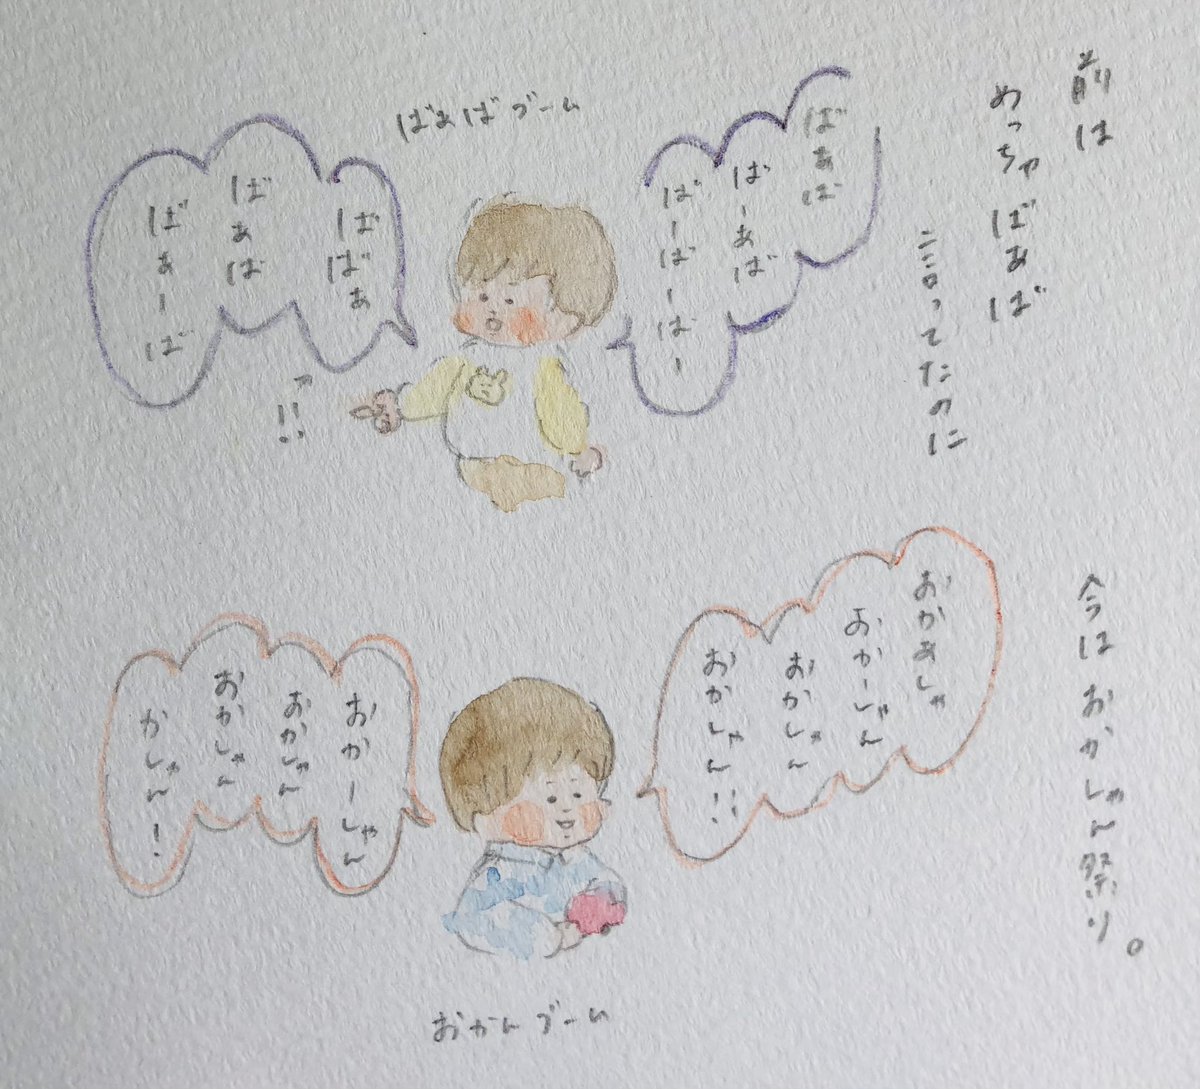 前は
めっちゃばあば
言ってたのに
ばあばブーム
ばあば
ばーあば
ばーばーばー
ばばぁ
ばあば
ばぁーば
!!
今はおかしゃん祭り。
おかあしゃ
おかーしゃん
おかしゃん
おかしゃん!!
おかーしゃん
おかしゃん
おかしゃん
かしゃん!
おかんブーム